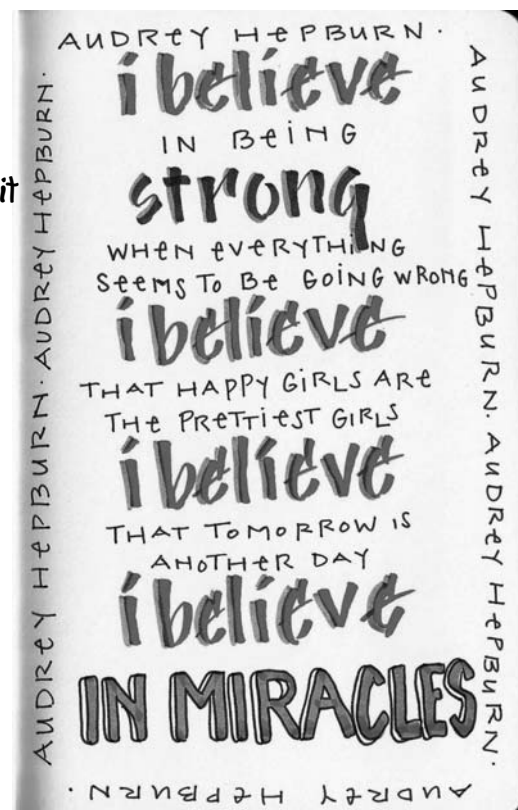 AUDREY HEPBURN.
i believe
IN BEING
strong
WHEN EVERYTHING
SEEMS TO BE GOING WRONG
i believe
THAT HAPPY GIRLS ARE
THE PRETTIEST GIRLS
i believe
THAT TOMORROW IS
ANOTHER DAY
i believe
IN MIRACLES
AUDREY HEPBURN. AUDREY HEPBURN.
AUDREY HEPBURN.
AUDREY HEPBURN. AUDREY HEPBURN.
it